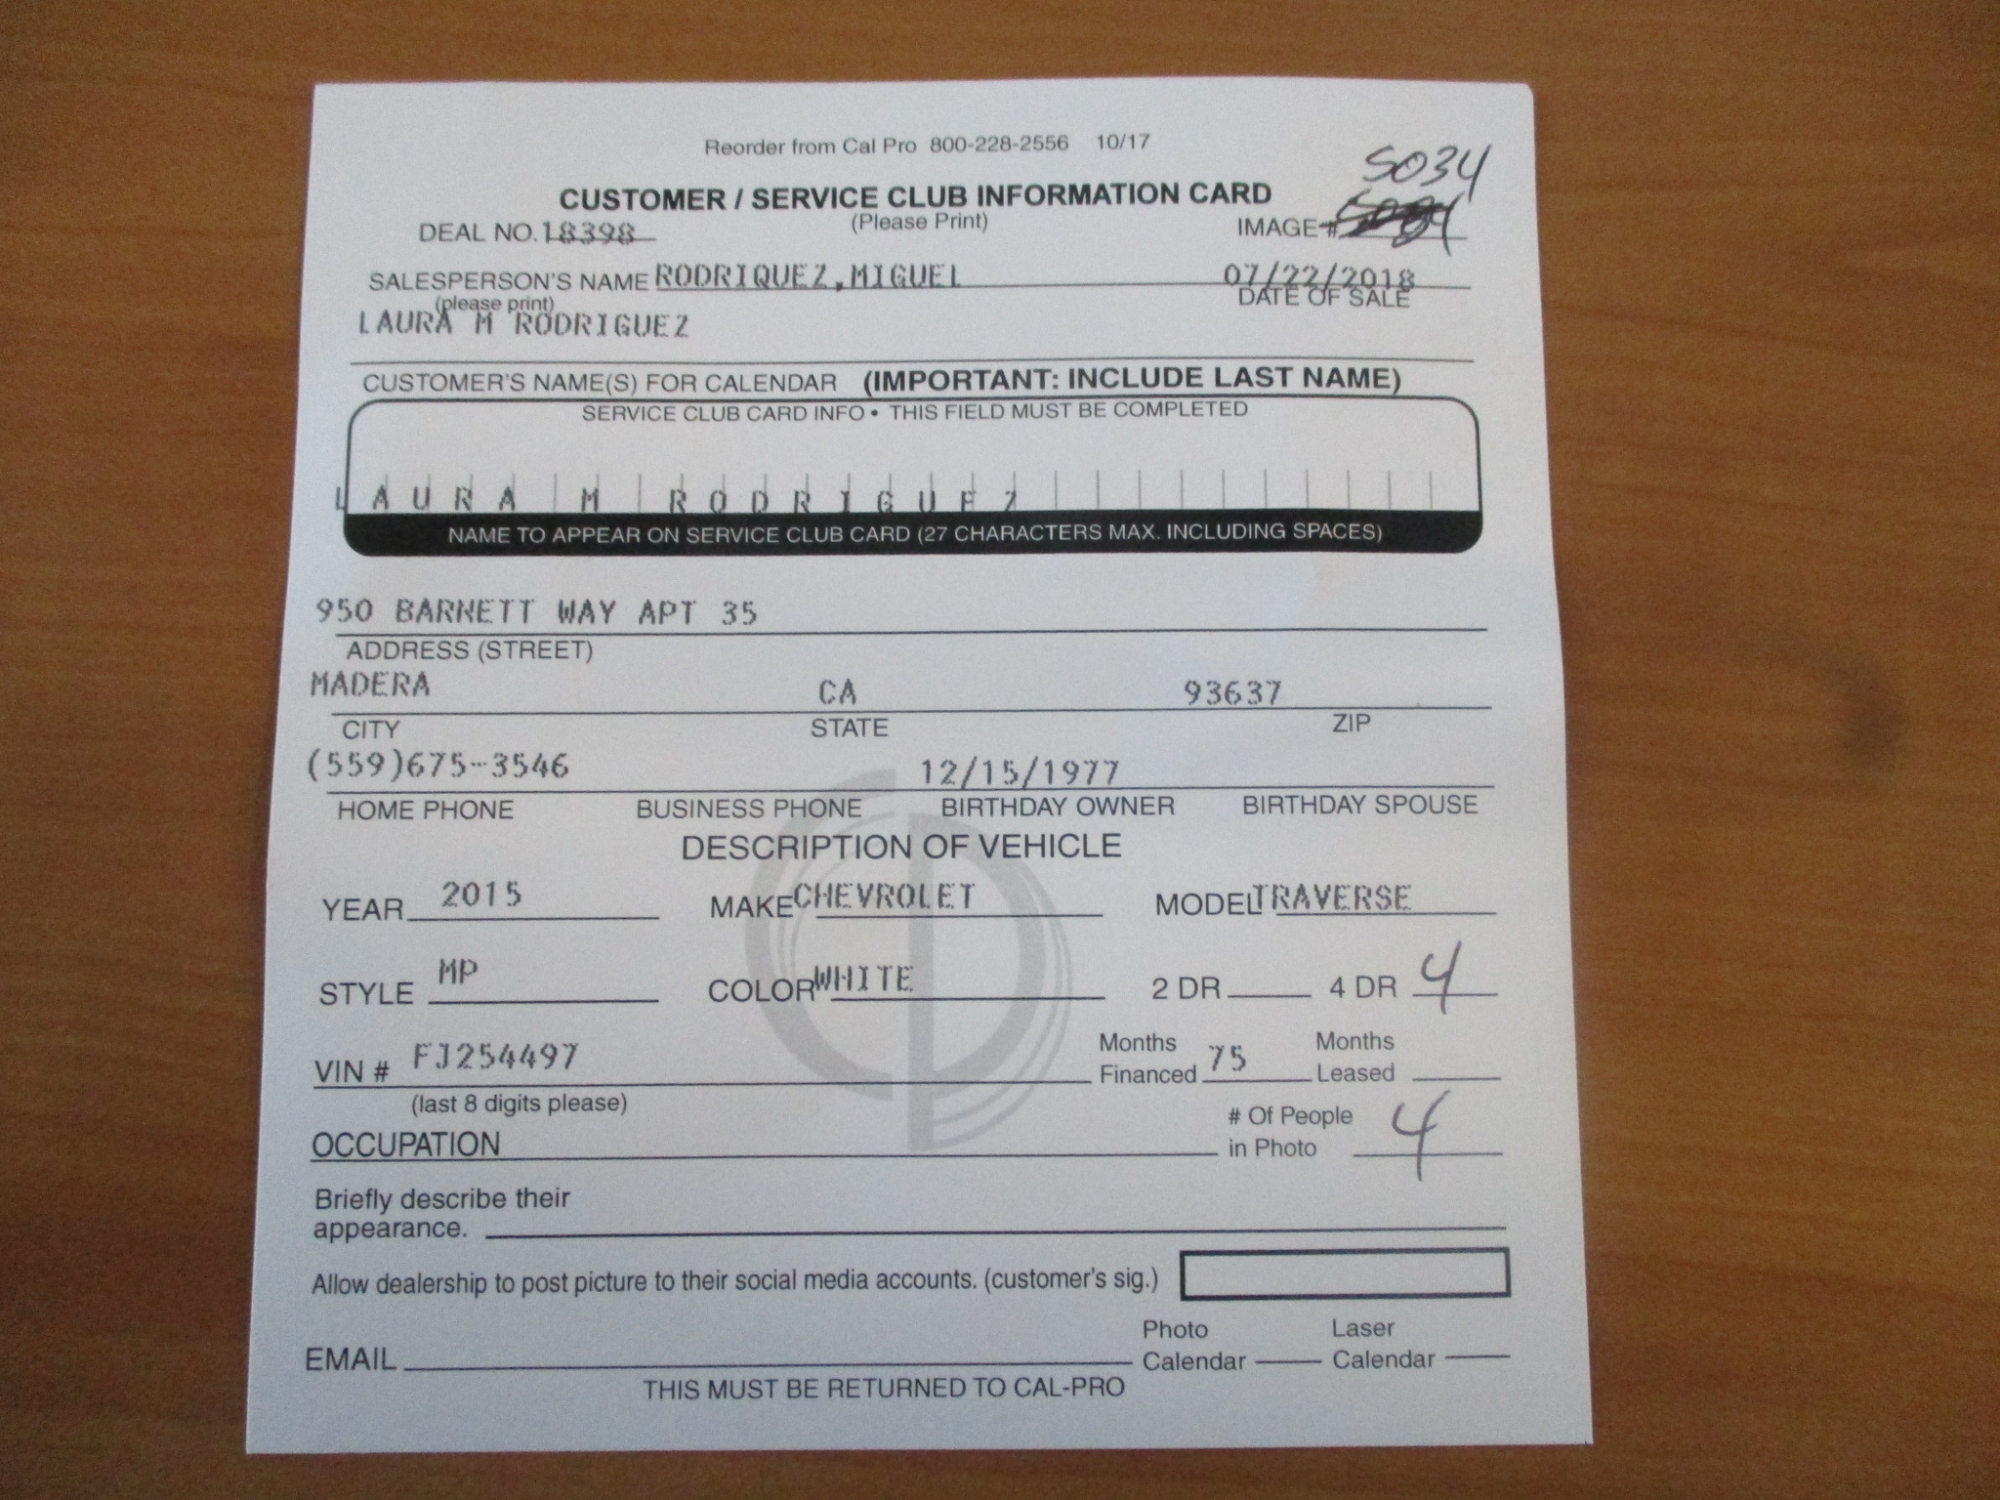 Reorder from Cal Pro 800-228-2556 10/17
5034
CUSTOMER / SERVICE CLUB INFORMATION CARD
DEAL NO. 18398 (Please Print) IMAGE #
SALESPERSON'S NAME RODRIQUEZ,MIGUEL 07/22/2018
(please print) DATE OF SALE
LAURA M RODRIGUEZ
CUSTOMER'S NAME(S) FOR CALENDAR (IMPORTANT: INCLUDE LAST NAME)
SERVICE CLUB CARD INFO • THIS FIELD MUST BE COMPLETED
L A U R A M R O D R I G U E Z
NAME TO APPEAR ON SERVICE CLUB CARD (27 CHARACTERS MAX. INCLUDING SPACES)
950 BARNETT WAY APT 35
ADDRESS (STREET)
MADERA CA 93637
CITY STATE ZIP
(559)675-3546 12/15/1977
HOME PHONE BUSINESS PHONE BIRTHDAY OWNER BIRTHDAY SPOUSE
DESCRIPTION OF VEHICLE
YEAR 2015 MAKE CHEVROLET MODEL TRAVERSE
STYLE MP COLOR WHITE 2 DR 4 DR 4
VIN # FJ254497 Months Financed 75 Months Leased
(last 8 digits please)
OCCUPATION # Of People in Photo 4
Briefly describe their
appearance.
Allow dealership to post picture to their social media accounts. (customer's sig.)
EMAIL Photo Calendar Laser Calendar
THIS MUST BE RETURNED TO CAL-PRO